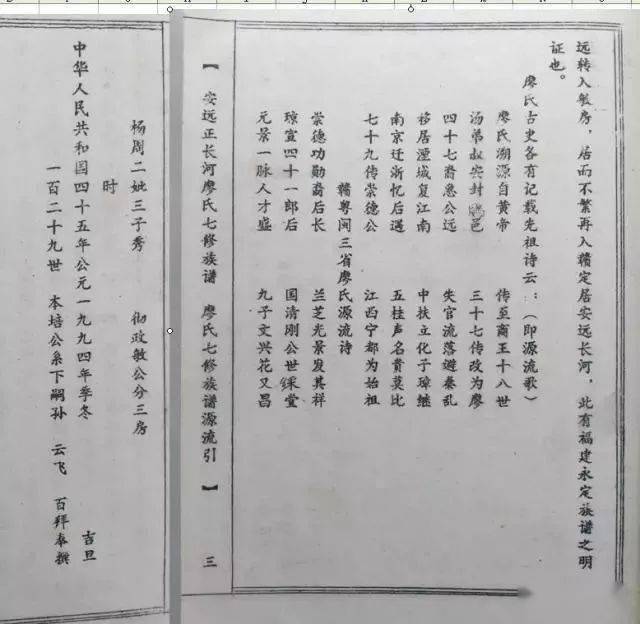 远转入敏房，居而不繁再入赣定居安远长河，此有福建永定族谱之明
证也。
廖氏古史各有记载先祖诗云：（即源流歌）
廖氏溯源自黄帝 传至商王十八世
汤弟叔安封邑 三十七传改为廖
四十七裔惠公远 失官流落避秦乱
移居湮城复江南 中扶立化子璋继
南京迁浙忆后遇 五桂声名贵莫比
七十九传崇德公 江西宁都为始祖
赣粤闽三省廖氏源流诗
崇德功勋裔后长 兰芝光景发其祥
琼宣四十一郎后 国清刚公世堂
元景一脉人才盛 九子文兴花又昌
【 安远正长河廖氏七修族谱 廖氏七修族谱源流引 】 三
杨周二妣三子秀 彻政敏公分三房
时
中华人民共和国四十五年公元一九九四年季冬 吉旦
一百二十九世 本培公系下嗣孙 云飞 百拜奉撰